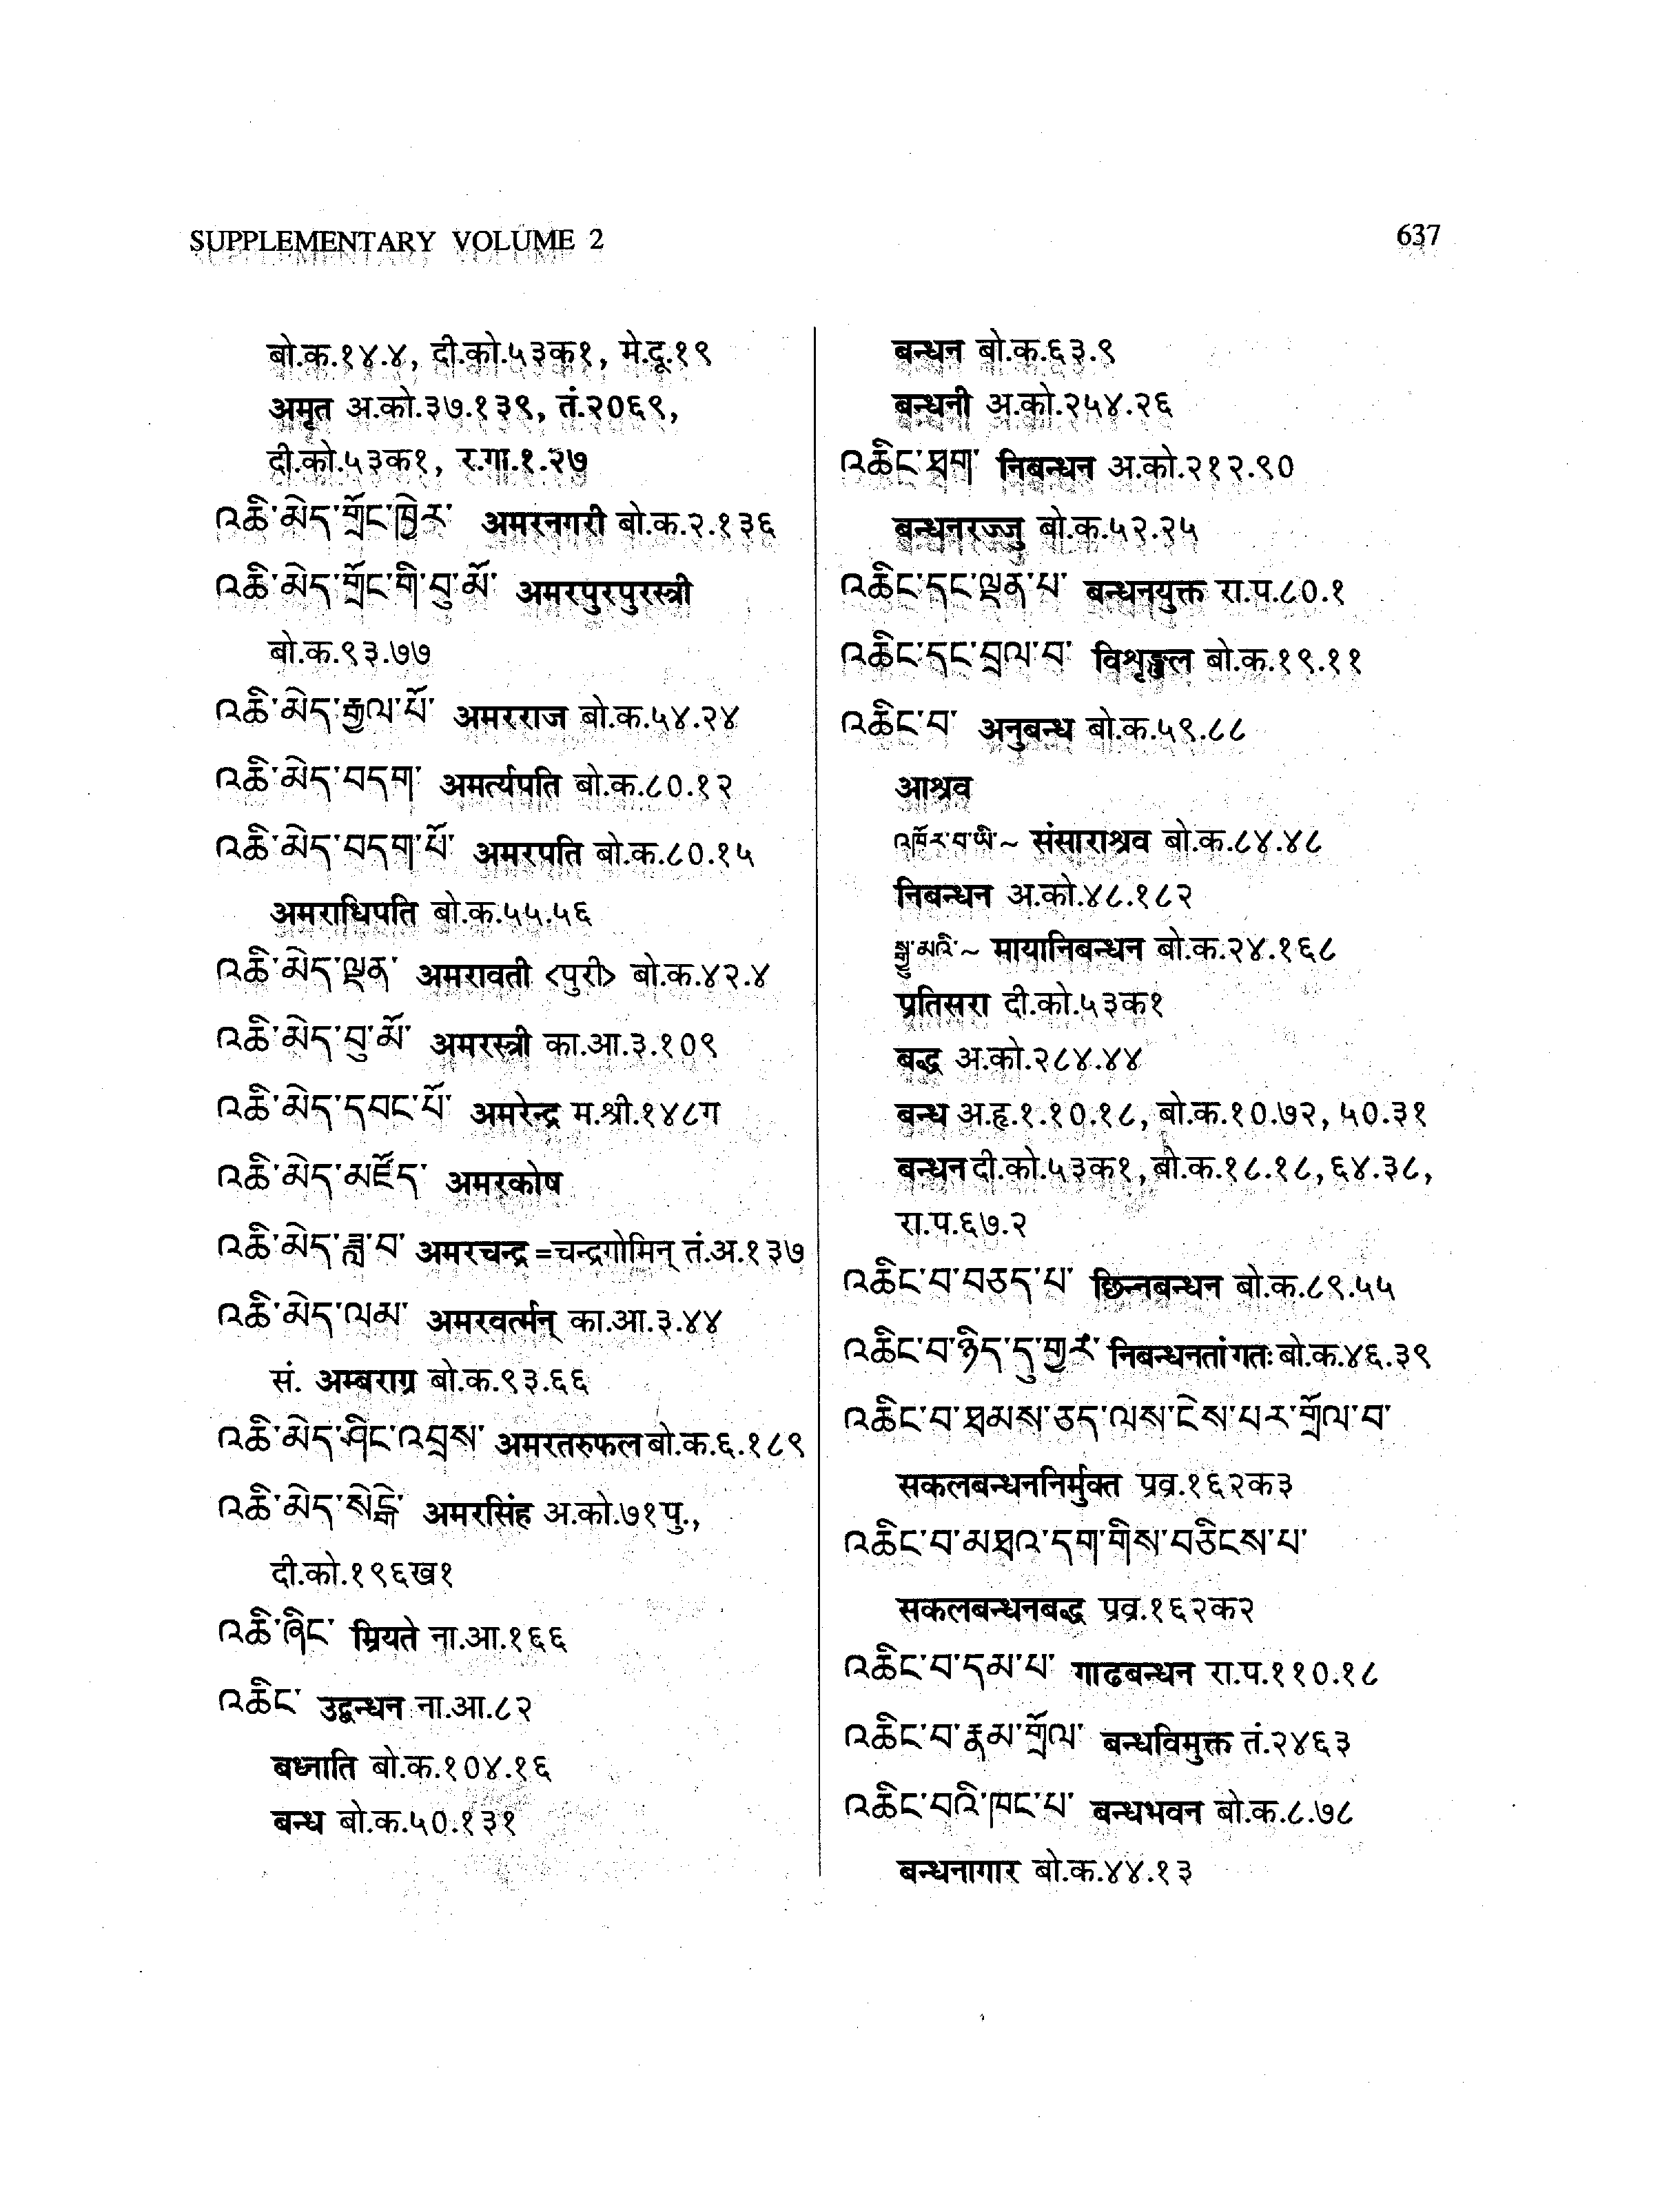 SUPPLEMENTARY VOLUME 2
637
बो.क.१४.४, दी.को.५३क१, मे.दू.१९
अमृत अ.को.३७.१३९, तं.२०६९,
दी.को.५३क१, र.गा.१.२७
འཆི་མེད་གྲོང་ཁྱེར་ अमरनगरी बो.क.२.१३६
འཆི་མེད་གྲོང་གི་བུ་མོ་ अमरपुरपुरस्त्री
बो.क.९३.७७
འཆི་མེད་རྒྱལ་པོ་ अमरराज बो.क.५४.२४
འཆི་མེད་བདག་ अमर्त्यपति बो.क.८०.१२
འཆི་མེད་བདག་པོ་ अमरपति बो.क.८०.१५
अमराधिपति बो.क.५५.५६
འཆི་མེད་ལྡན་ अमरावती <पुरी> बो.क.४२.४
འཆི་མེད་བུ་མོ་ अमरस्त्री का.आ.३.१०९
འཆི་མེད་དབང་པོ་ अमरेन्द्र म.श्री.१४८ग
འཆི་མེད་མཛོད་ अमरकोष
འཆི་མེད་ཟླ་བ་ अमरचन्द्र =चन्द्रगोमिन् तं.अ.१३७
འཆི་མེད་ལམ་ अमरवर्त्मन् का.आ.३.४४
सं. अम्बराग्र बो.क.९३.६६
འཆི་མེད་ཤིང་འབྲས་ अमरतरुफल बो.क.६.१८९
འཆི་མེད་སེངྒེ་ अमरसिंह अ.को.७१पु.,
दी.को.१९६ख१
འཆི་ཞིང་ म्रियते ना.आ.१६६
འཆིང་ उद्बन्धन ना.आ.८२
बध्नाति बो.क.१०४.१६
बन्ध बो.क.५०.१३१
बन्धन बो.क.६३.९
बन्धनी अ.को.२५४.२६
འཆིང་ཐག་ निबन्धन अ.को.२१२.९०
बन्धनरज्जु बो.क.५२.२५
འཆིང་དང་ལྡན་པ་ बन्धनयुक्त रा.प.८०.१
འཆིང་དང་བྲལ་བ་ विशृङ्खल बो.क.१९.११
འཆིང་བ་ अनुबन्ध बो.क.५९.८८
आश्रव
འཁོར་བ་ཡི་~ संसाराश्रव बो.क.८४.४८
निबन्धन अ.को.४८.१८२
སྒྱུ་མའི་~ मायानिबन्धन बो.क.२४.१६८
प्रतिसरा दी.को.५३क१
बद्ध अ.को.२८४.४४
बन्ध अ.हृ.१.१०.१८, बो.क.१०.७२, ५०.३१
बन्धन दी.को.५३क१, बो.क.१८.१८, ६४.३८,
रा.प.६७.२
འཆིང་བ་བཅད་པ་ छिन्नबन्धन बो.क.८९.५५
འཆིང་བ་ཉིད་དུ་གྱུར་ निबन्धनतां गतः बो.क.४६.३९
འཆིང་བ་ཐམས་ཅད་ལས་ངེས་པར་གྲོལ་བ་
सकलबन्धननिर्मुक्त प्रव्र.१६२क३
འཆིང་བ་མཐའ་དག་གིས་བཅིངས་པ་
सकलबन्धनबद्ध प्रव्र.१६२क२
འཆིང་བ་དམ་པ་ गाढबन्धन रा.प.११०.१८
འཆིང་བ་རྣམ་གྲོལ་ बन्धविमुक्त तं.२४६३
འཆིང་བའི་ཁང་པ་ बन्धभवन बो.क.८.७८
बन्धनागार बो.क.४४.१३